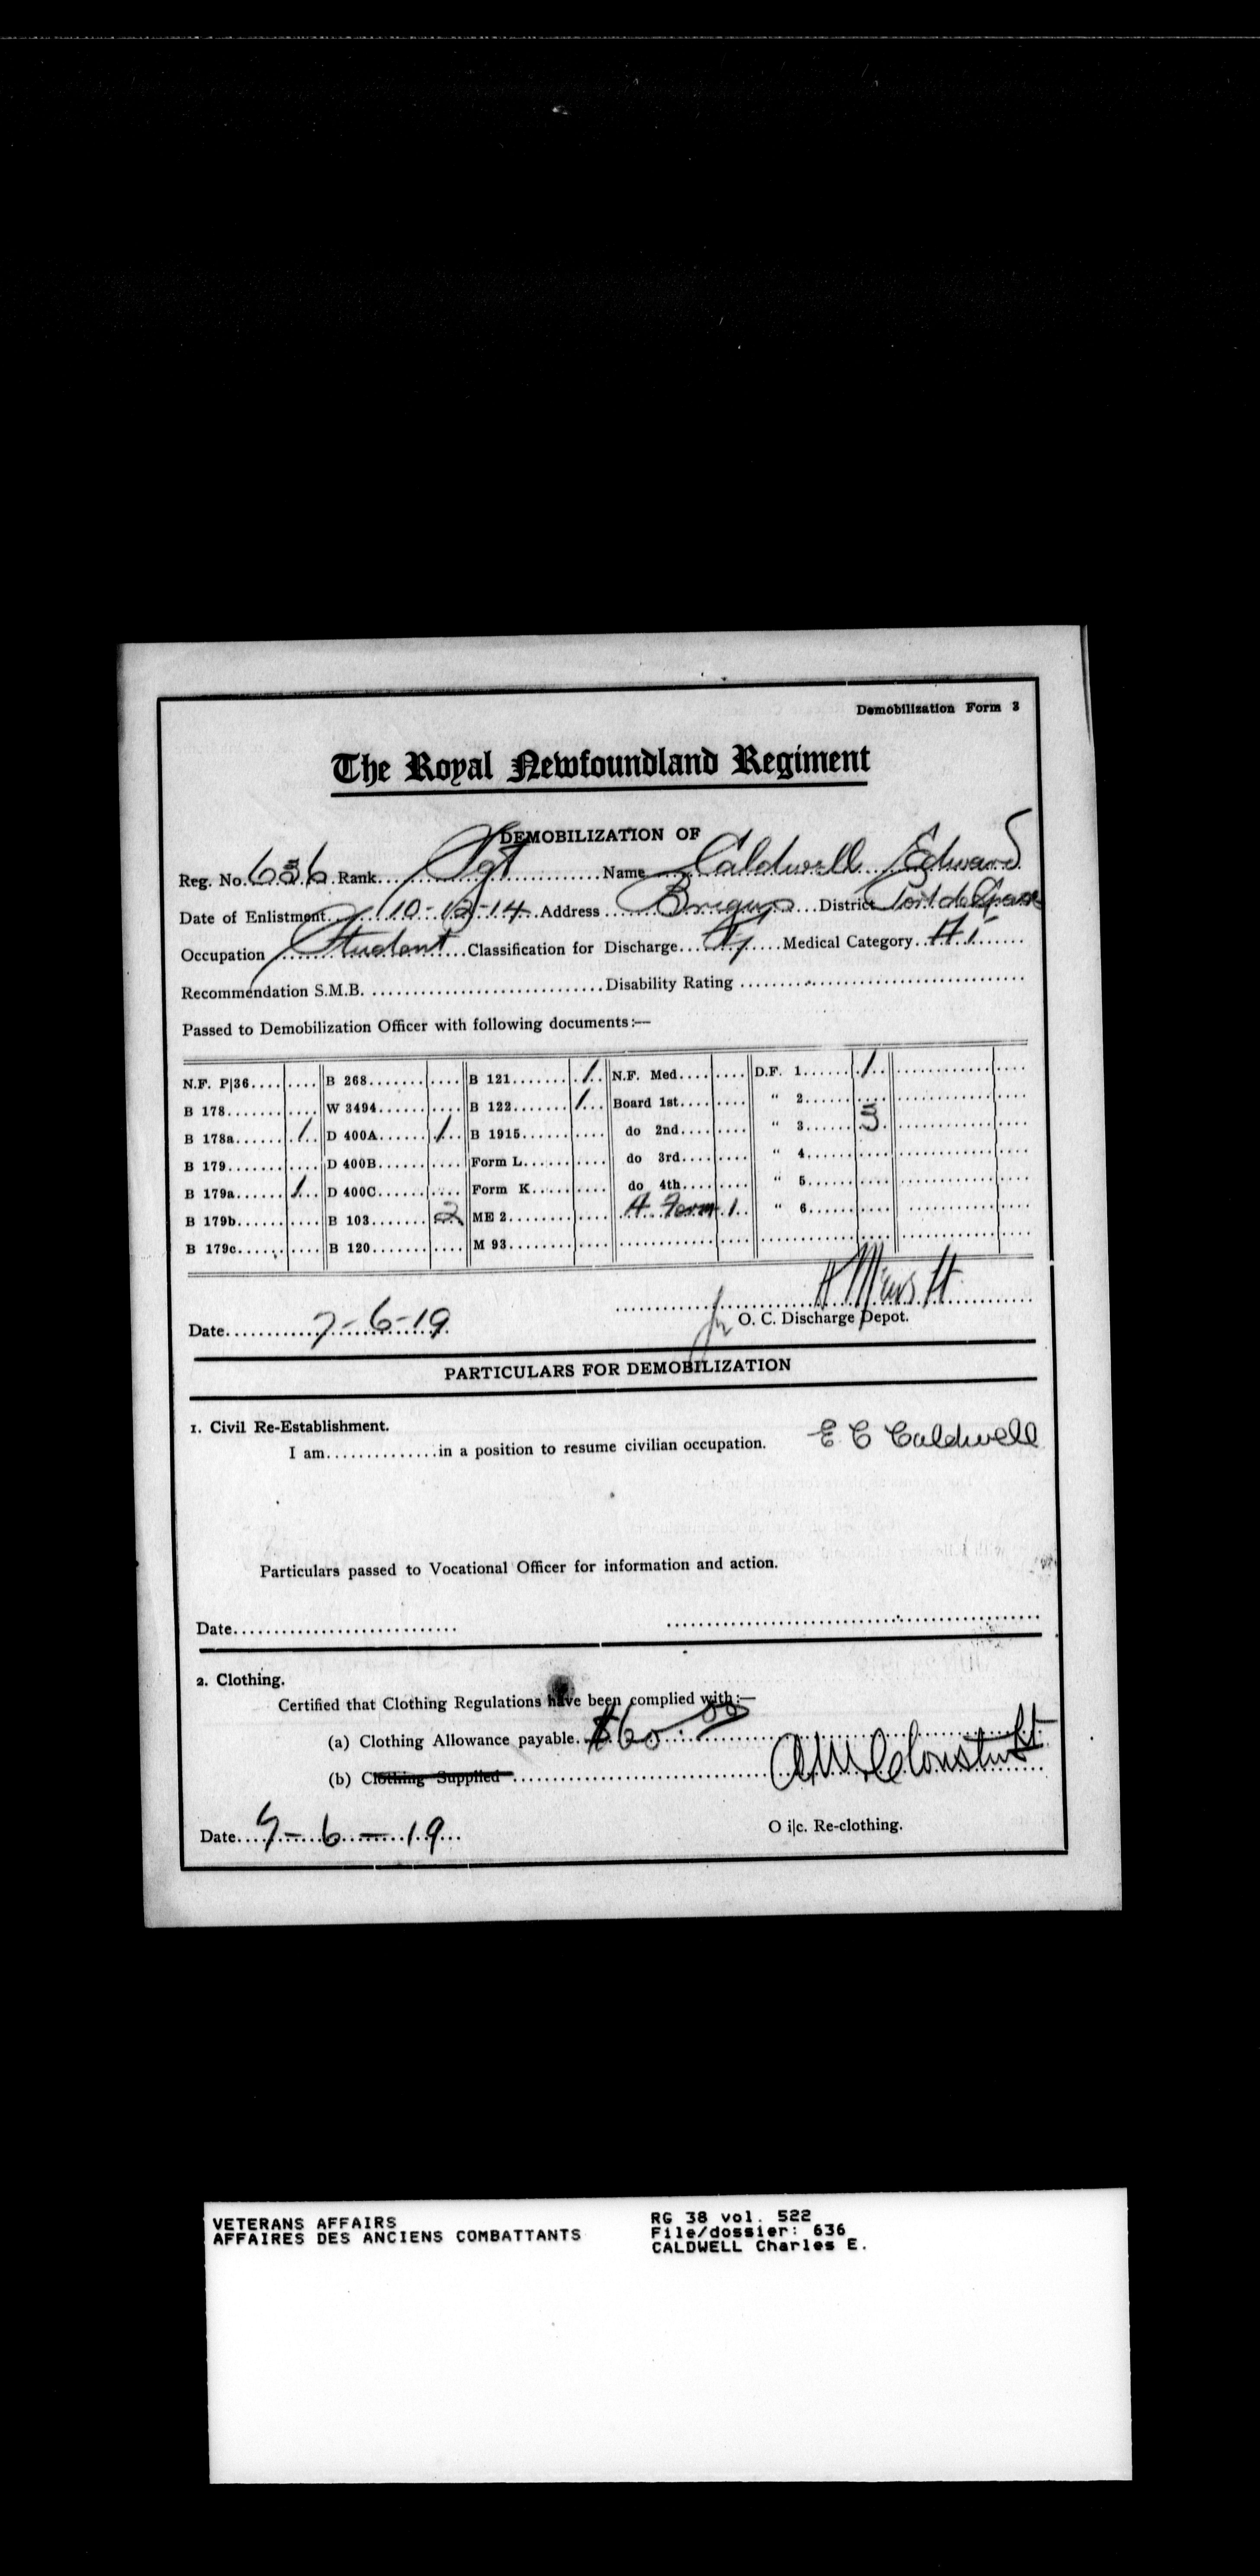 Demobilization Form 3
The Royal Newfoundland Regiment
DEMOBILIZATION OF
Reg. No. 636 Rank Sgt Name Caldwell Edward
Date of Enlistment 10-12-14 Address Brigus District Port de Grave
Occupation Student Classification for Discharge Medical Category A1
Recommendation S.M.B. Disability Rating
Passed to Demobilization Officer with following documents:—
N.F. P|36 B 268 B 121 1 N.F. Med D.F. 1 1
B 178 W 3494 B 122 1 Board 1st " 2
B 178a 1 D 400A 1 B 1915 do 2nd " 3 3
B 179 D 400B Form L do 3rd " 4
B 179a 1 D 400C Form K do 4th " 5
B 179b B 103 2 ME 2 A Form 1 " 6
B 179c B 120 M 93
Date 7-6-19 O. C. Discharge Depot.
PARTICULARS FOR DEMOBILIZATION
1. Civil Re-Establishment.
I am in a position to resume civilian occupation. E C Caldwell
Particulars passed to Vocational Officer for information and action.
Date
2. Clothing.
Certified that Clothing Regulations have been complied with:—
(a) Clothing Allowance payable $60.00
(b) Clothing Supplied
Date 7-6-19 O i|c. Re-clothing.
VETERANS AFFAIRS RG 38 vol. 522
AFFAIRES DES ANCIENS COMBATTANTS File/dossier: 636
CALDWELL Charles E.